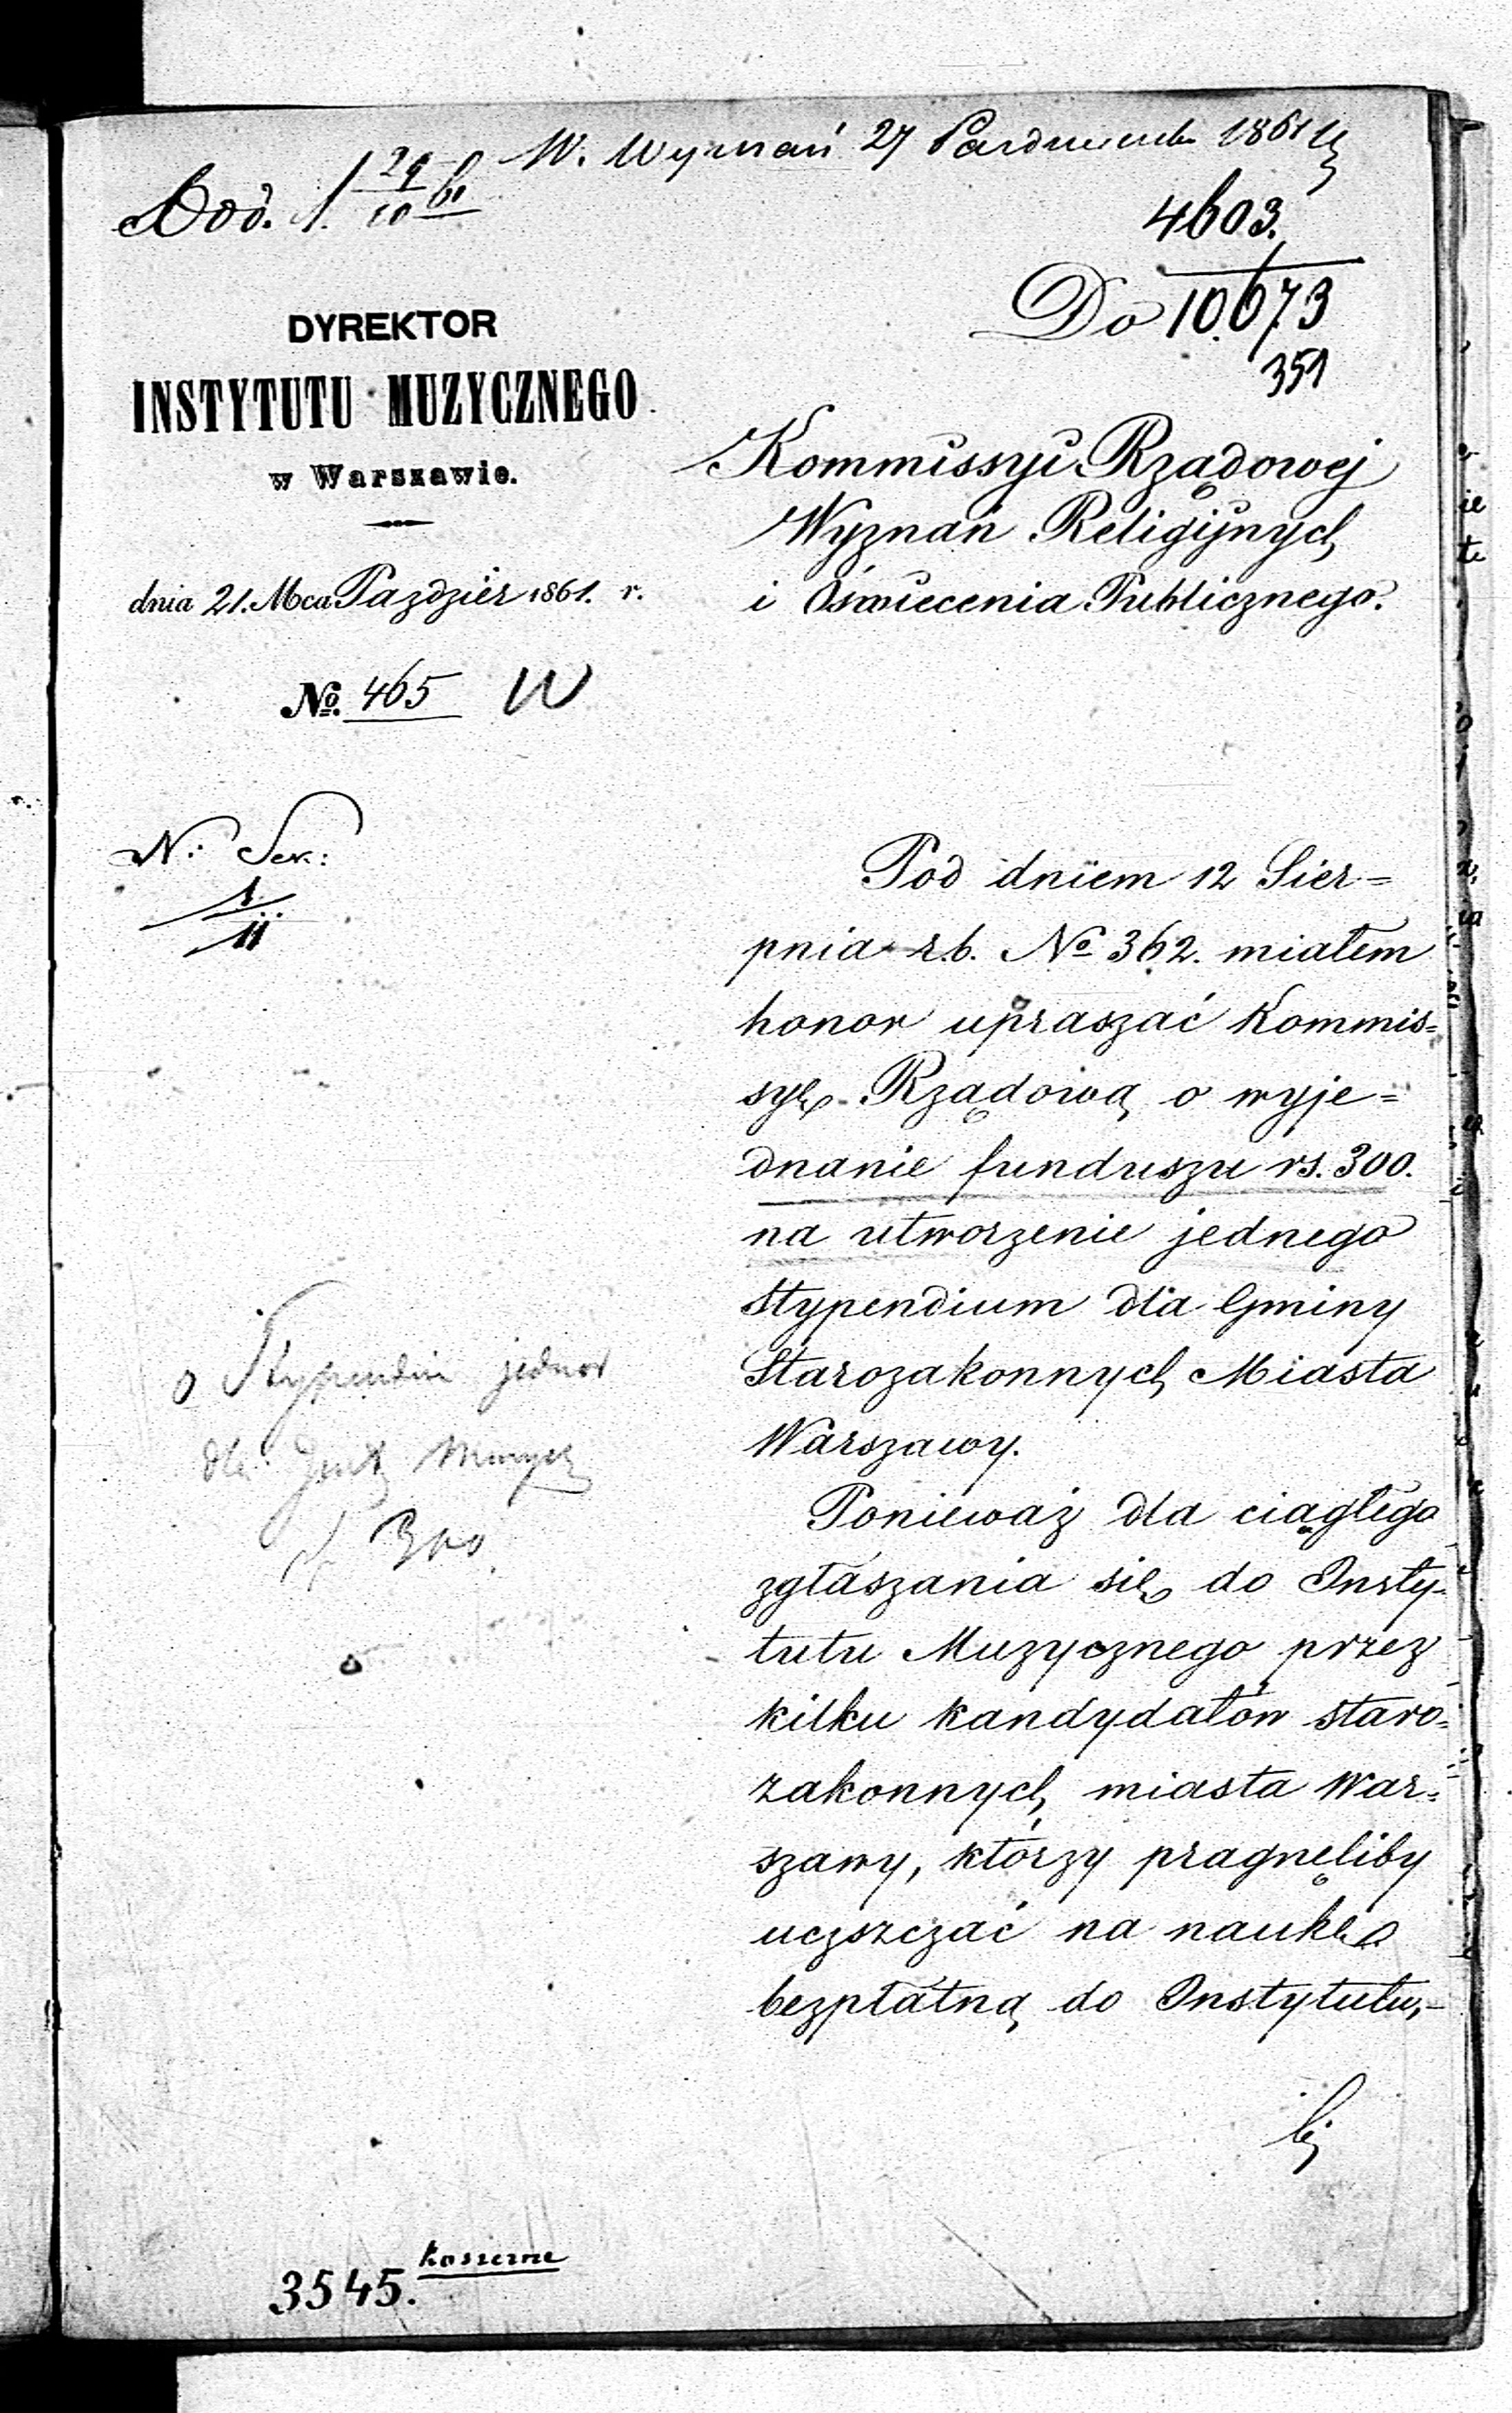 W. Wyznań 27 Października 1861
Dod. 29/10 61
4603.
10.673
351
DYREKTOR
INSTYTUTU MUZYCZNEGO
w Warszawie.
dnia 21. Mca Paździer 1861. r.
№ 465 W
Do
Kommissyi Rządowej
Wyznań Religijnych
i Oświecenia Publicznego.
N: Sek:
1/11
Pod dniem 12 Sier=
pnia r.b. № 362. miałem
honor upraszać Kommis=
syę Rządową o wyje=
dnanie funduszu rs. 300.
na utworzenie jednego
Stypendium dla Gminy
Starozakonnych Miasta
Warszawy.
Ponieważ dla ciągłego
zgłaszania się do Insty-
tutu Muzycznego przez
kilku kandydatów staro=
zakonnych miasta War=
szawy, którzy pragnęliby
uczszczać na naukę
bezpłatną do Instytutu,-
o Stypendia
dla
300
3545. koszerne